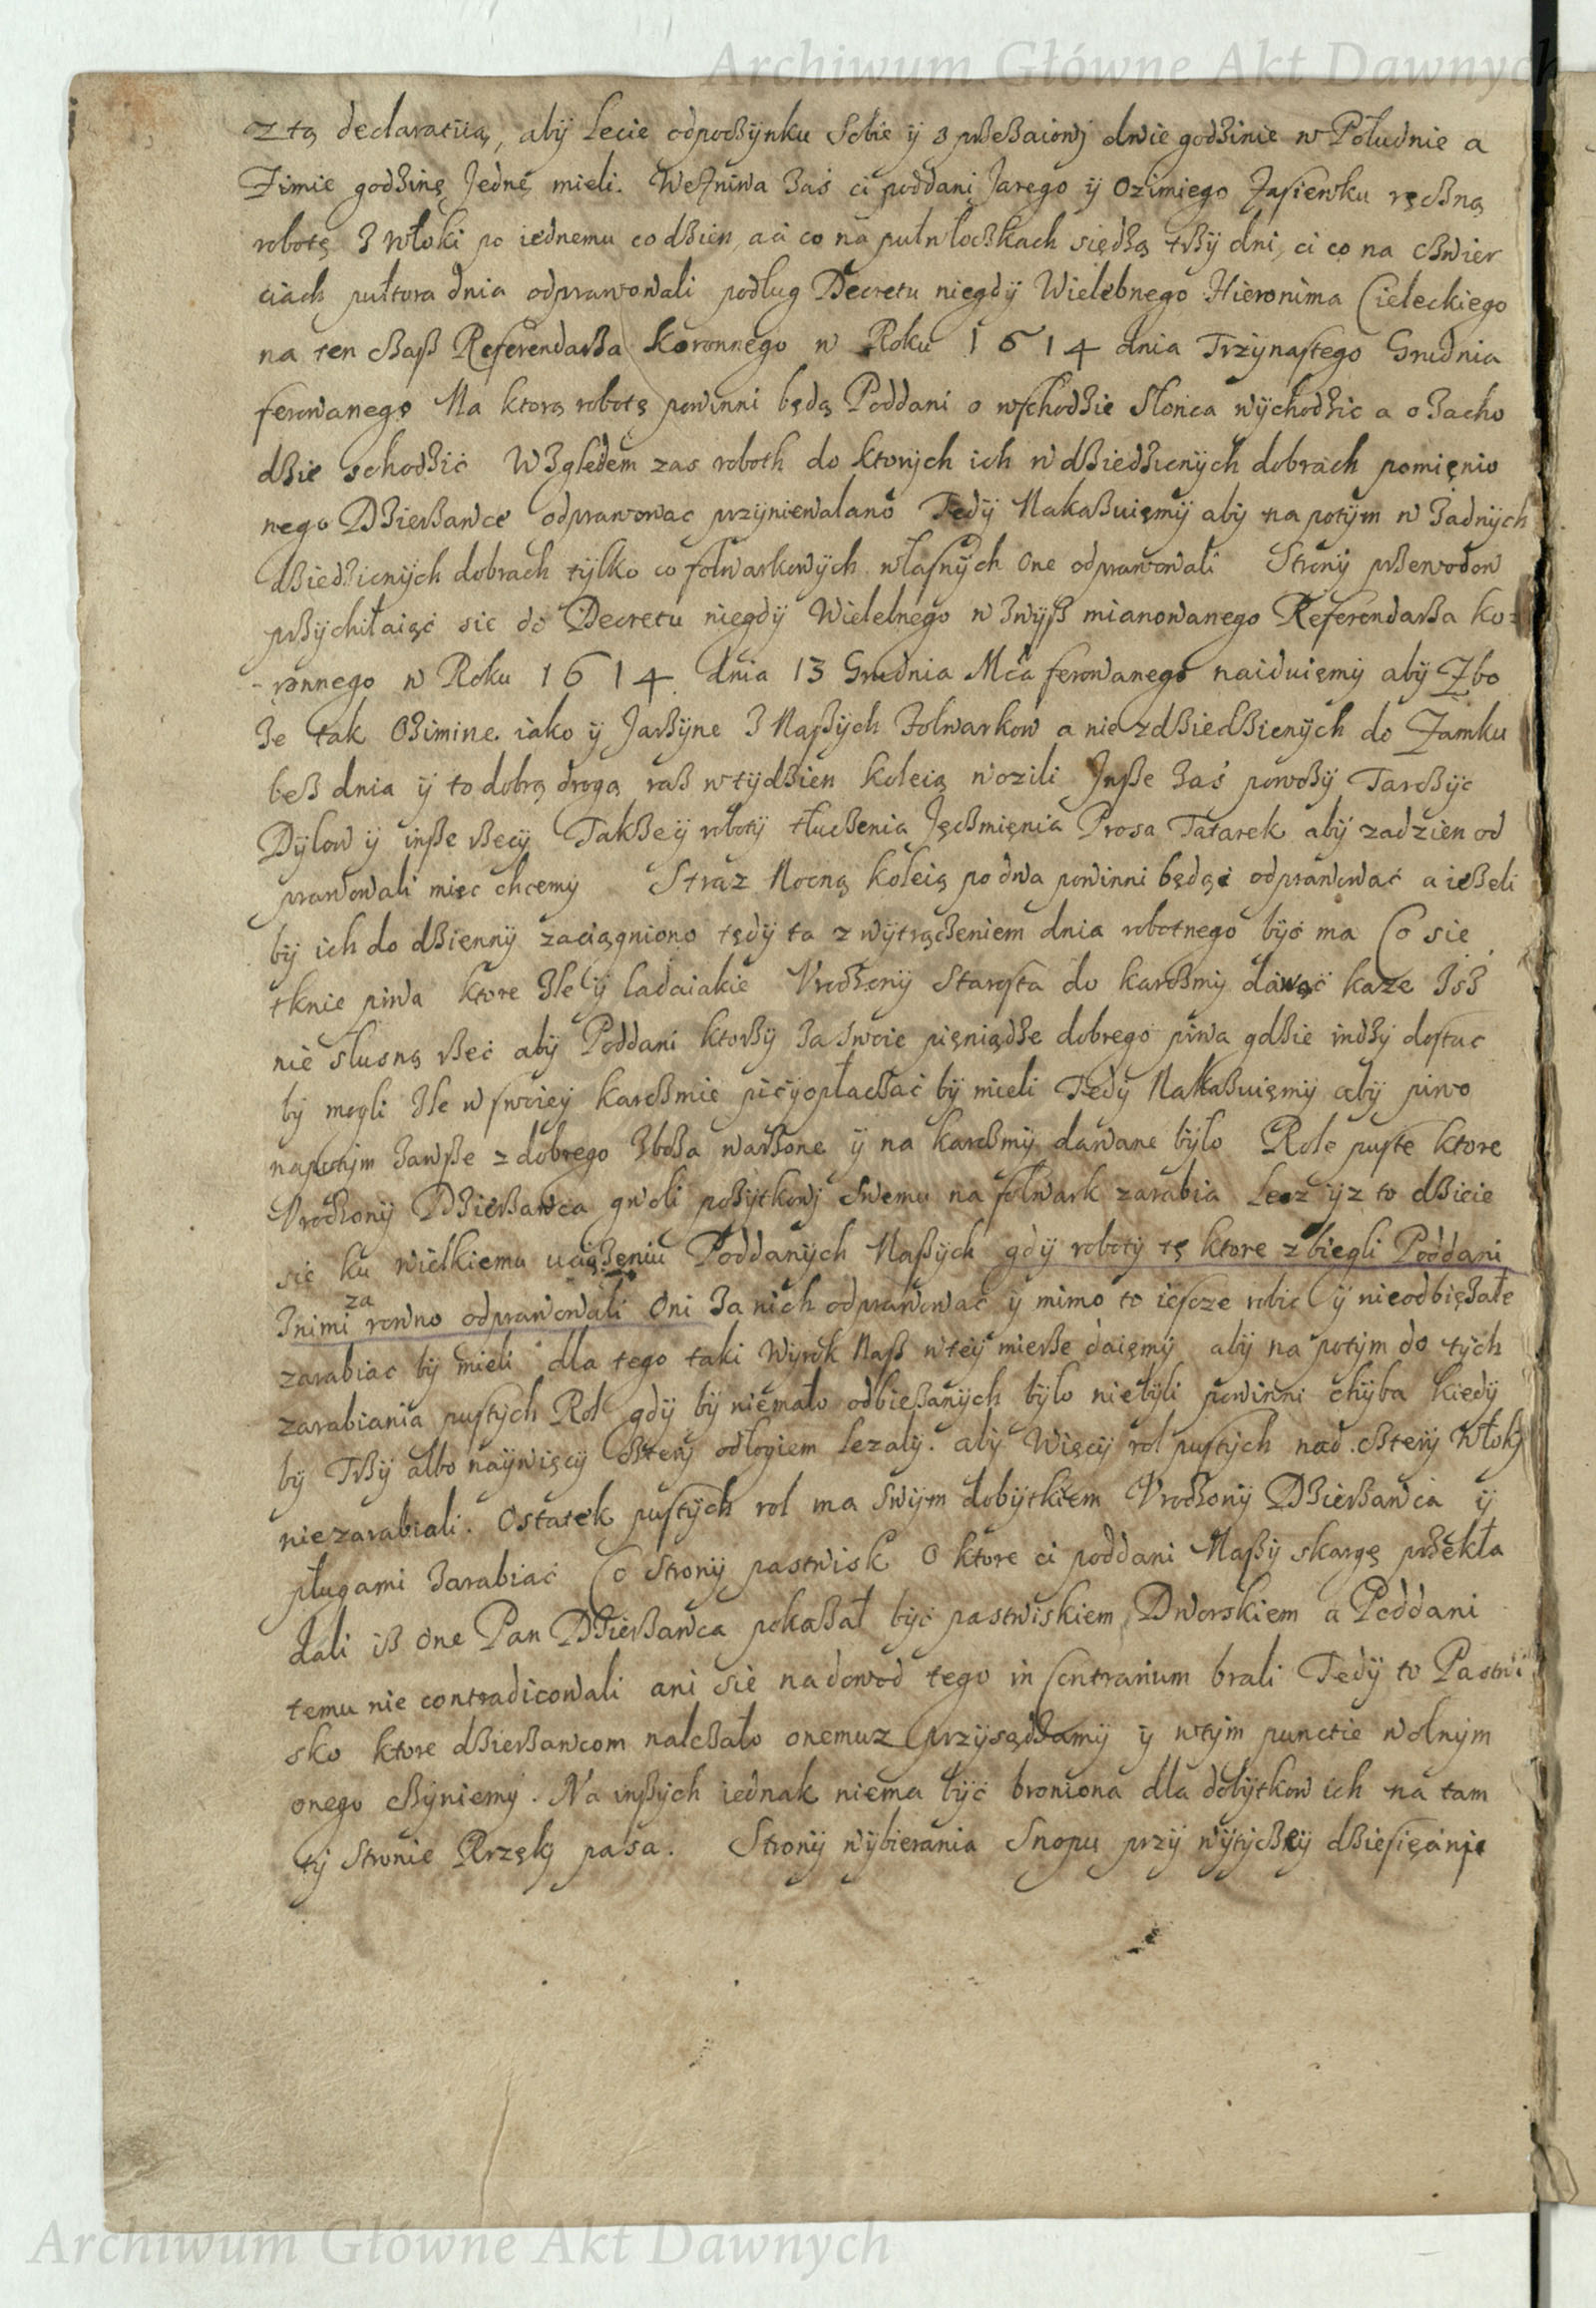 Archiwum Główne Akt Dawnych
z tą declaratiią, abÿ Lecie odpoczÿnku Sobie ÿ z przezaiowj dwie godzinie w Południe a
Zimie godzinę Jednę mieli. We Zniwa Zaś ci poddani Jarego ÿ Ozimiego Zasiewku ręczną
robotę z włoki po iednemu co dzien, a ci co na pułwłoczkach siędzą trzÿ dni, ci co na czwier
ciach pułtora dnia odprawowali podług Decretu niegdÿ Wielebnego Hieronima Cieleckiego
na ten czasz Referendarza Koronnego w Roku 1614 dnia Trzÿnastego Grudnia
ferowanego Na ktorą robotę powinni będą Poddani o wschodzie Słonca wÿchodzic a o zacho
dzie schodzić Względem zas roboth do ktorÿch ich w dziedzicnÿch dobrach pomięnio
nego Dzierzawce odprawowac przÿniewalano Tedÿ Nakazuięmÿ abÿ na potÿm w Zadnÿch
dziedzicnÿch dobrach tÿlko co folwarkowÿch własnÿch one odprawowali Stronÿ przewodow
przÿchiłaiąć sie do Decretu niegdÿ Wielebnego w zwÿsz mianowanego Referendarza Ko-
-ronnego w Roku 1614 dnia 13 Grudnia Mca ferowanego naiduięmÿ abÿ Zbo
ze tak Ozimine iako ÿ Jarzÿne z Naszÿch Folwarkow a nie z dziedzicnÿch do Zamku
bez dnia ÿ to dobrą drogą raz w tÿdzien koleią wozili Insze zaś powozÿ Tarczÿc
Dÿlow ÿ insze rzecÿ Takze ÿ robotÿ tłuczenia Jęczmięnia Prosa Tatarek abÿ zadzien od
prawowali mięc chcemÿ Straz Nocną koleią po dwa powinni będąc odprawować a iezeli
bÿ ich do dziennÿ zaciągniono tędÿ ta z wÿtrączeniem dnia robotnego bÿć ma Co sie
tknie piwa ktore Zle ÿ ladaiakie Vrodzonÿ Starosta do karczmÿ dawać kaze Isz
nie slusną rzec abÿ Poddani ktorzÿ za swoie pięniądze dobrego piwa gdzie indzÿ dostac
bÿ mogli Zle w swoieÿ karczmie pić ÿ opłaczać bÿ mieli Tedÿ Nakazuięmÿ abÿ piwo
napotÿm zawsze z dobrego Zboza warzone ÿ na karczmÿ dawane bÿło Role puste ktore
Vrodzonÿ Dzierzawca gwoli pozÿtkowj Swemu na folwark zarabia Lecz ÿz to dzieie
sie ku wielkiemu uciązeniu Poddanÿch Naszÿch gdÿ robotÿ tę ktore zbiegli Poddani
za
Znimi rowno odprawowali Oni za nich odprawować ÿ mimo to iescze robic ÿ nieodbięzałe
zarabiac bÿ mieli dla tego taki Wÿrok Nasz w teÿ mierze daięmÿ abÿ na potÿm do tÿch
zarabiania pustÿch Rol gdÿ bÿ niemało odbiezanÿch bÿło niebÿli powinni chÿba kiedÿ
bÿ Trzÿ albo naÿwięcÿ Czterÿ odłogiem Lezalÿ. abÿ Więcÿ rol pustÿch nad czterÿ Włokÿ
niezarabiali. Ostatek pustÿch rol ma Swÿm dobÿtkiem Vrodzonÿ Dzierzawca ÿ
pługami Zarabiać Co Stronÿ pastwisk O ktore ci poddani Naszÿ skargę przekła
dali iz one Pan Dzierzawca pokazał bÿć pastwiskiem Dworskiem a Poddani
temu nie contradicowali ani sie nadowod tego in Contrarium brali Tedÿ to Pastwi
sko ktore dzierzawcom nalezało onemuz przÿsądzamÿ ÿ w tÿm punctie wolnÿm
onego czÿniemÿ. Na inszÿch iednak niema bÿć broniona dla dobÿtkow ich na tam
tÿ Stronie Rzękÿ pasa. Stronÿ wÿbierania Snopu przÿ wÿtÿcznÿ dziesięcinie
Archiwum Główne Akt Dawnych